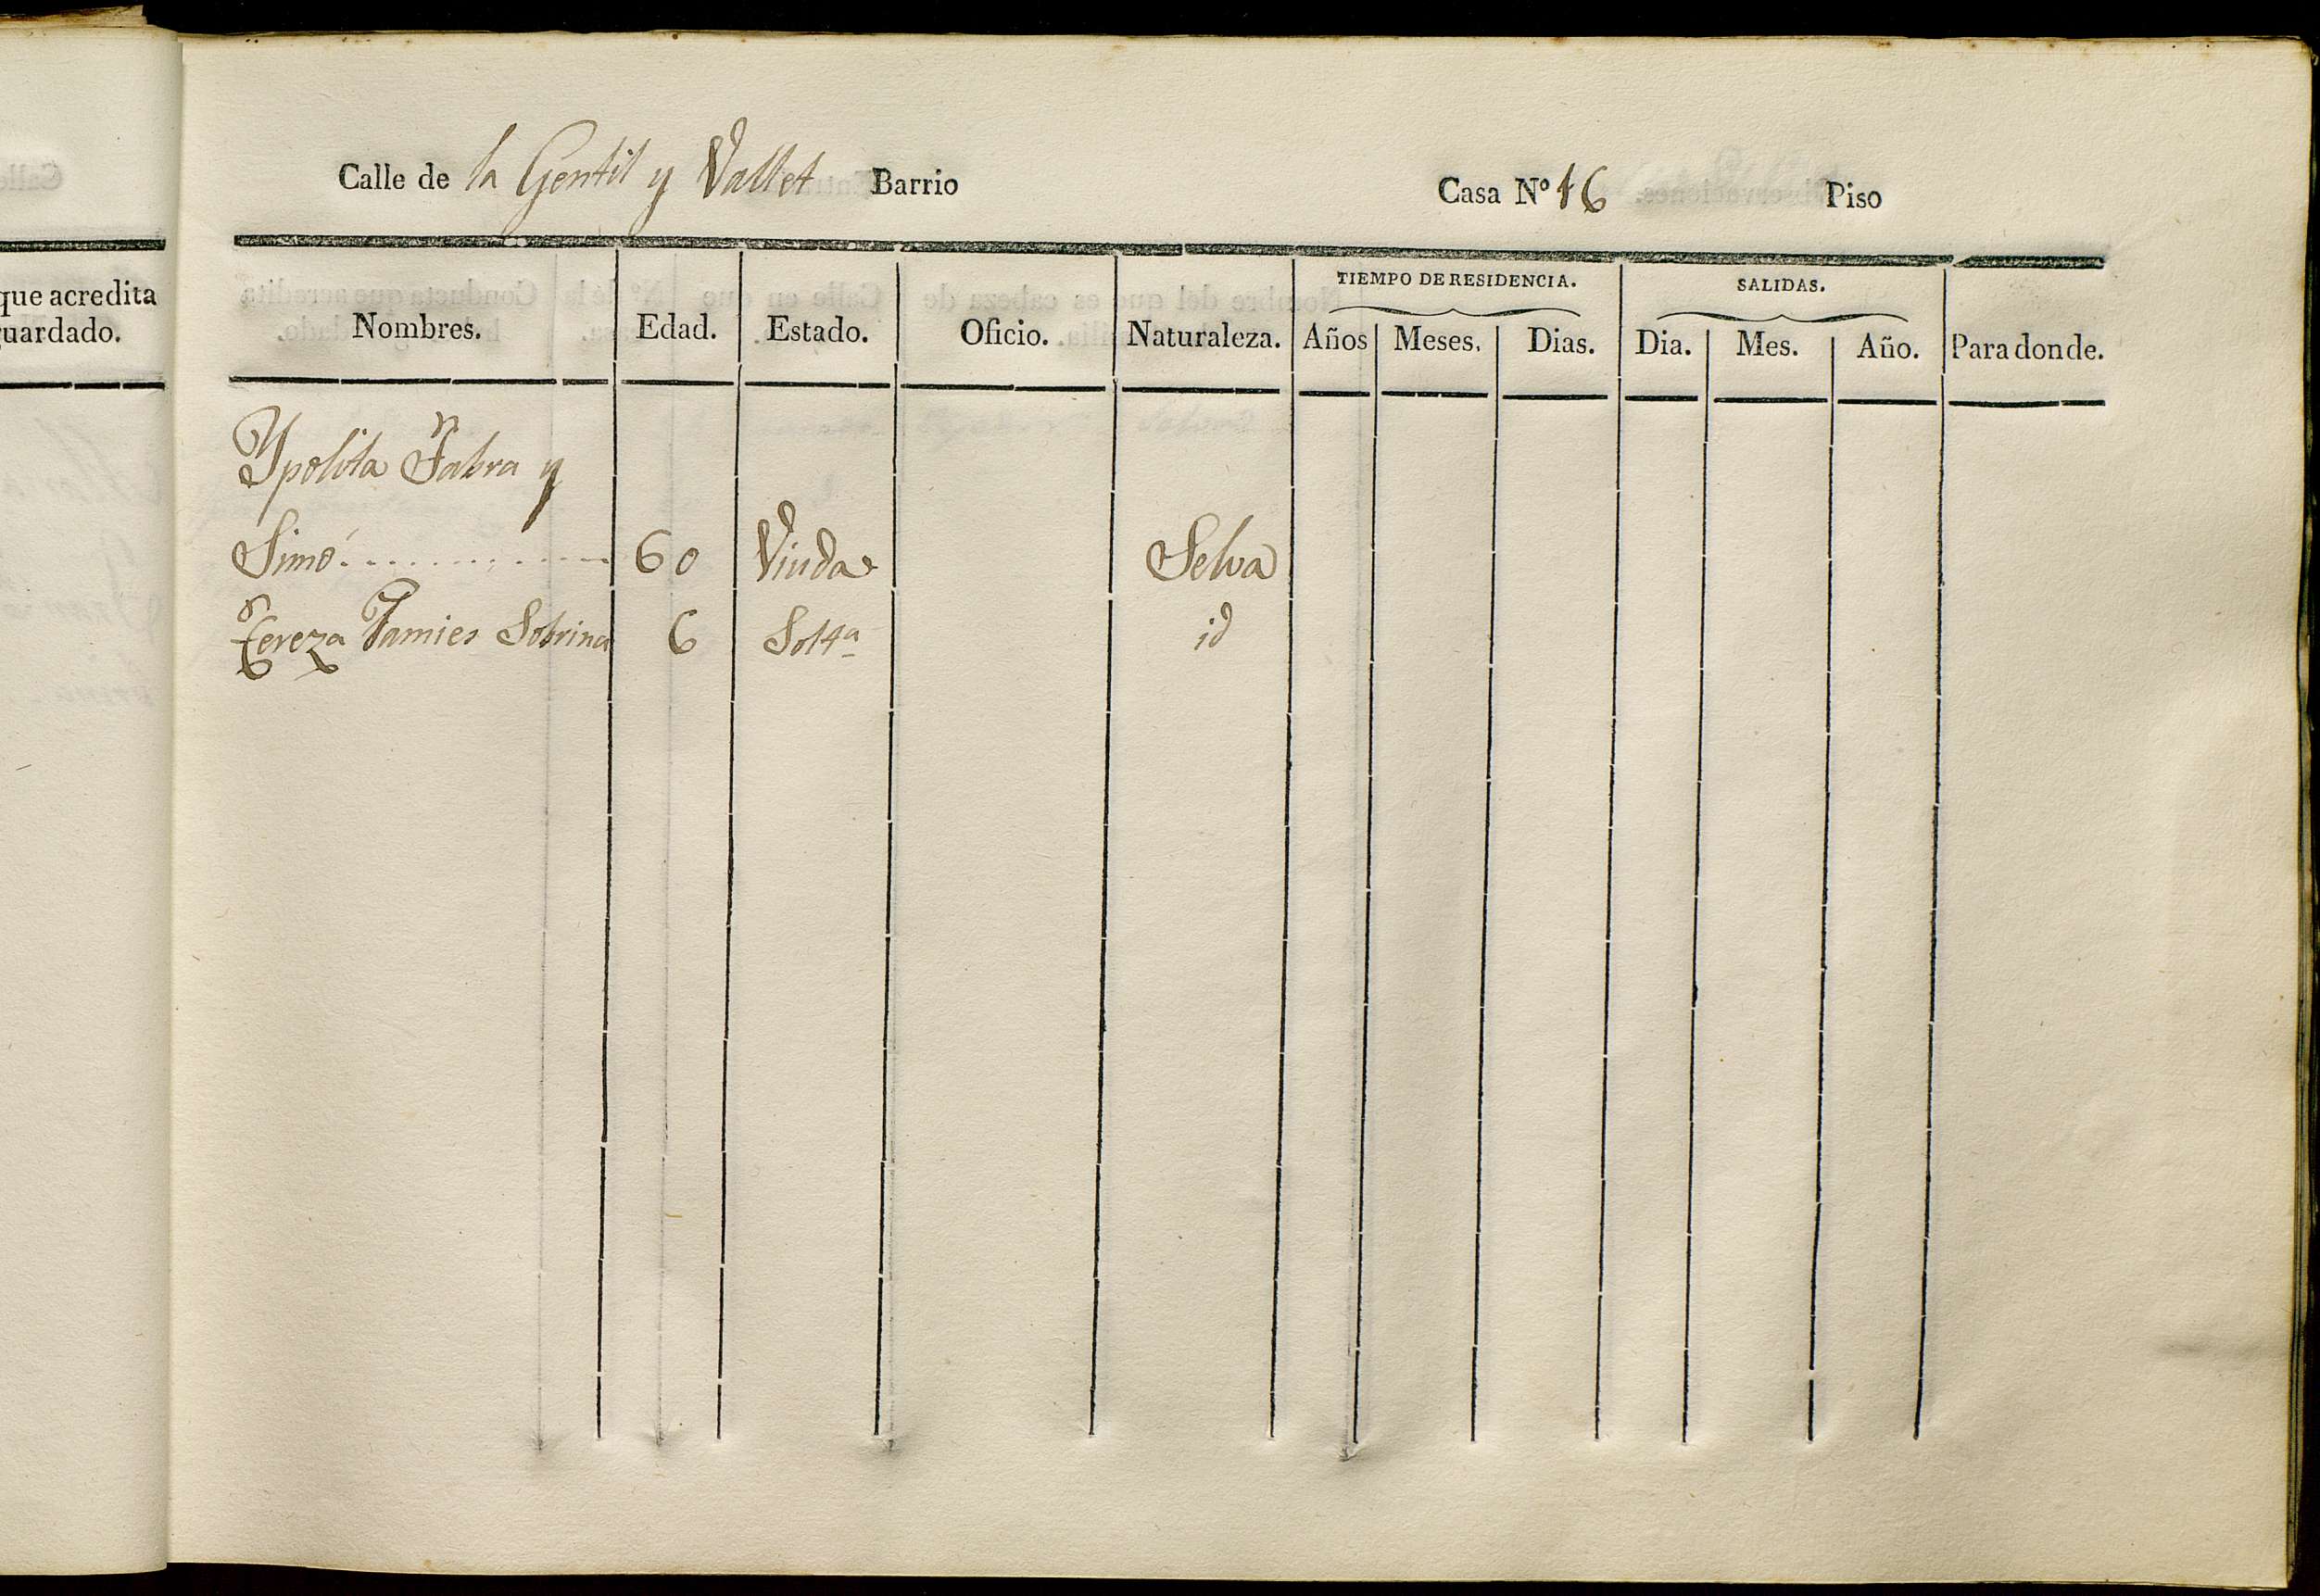 que acredita
guardado.
Calle de la Gentil y Vallet Barrio Casa Nº 16 Piso
TIEMPO DE RESIDENCIA. SALIDAS.
Nombres. Edad. Estado. Oficio. Naturaleza. Años Meses. Dias. Dia. Mes. Año. Para donde.
Ypolita Fabra y
Simó 60 Viuda Selva
Tereza Tamies Sobrina 6 Soltª id